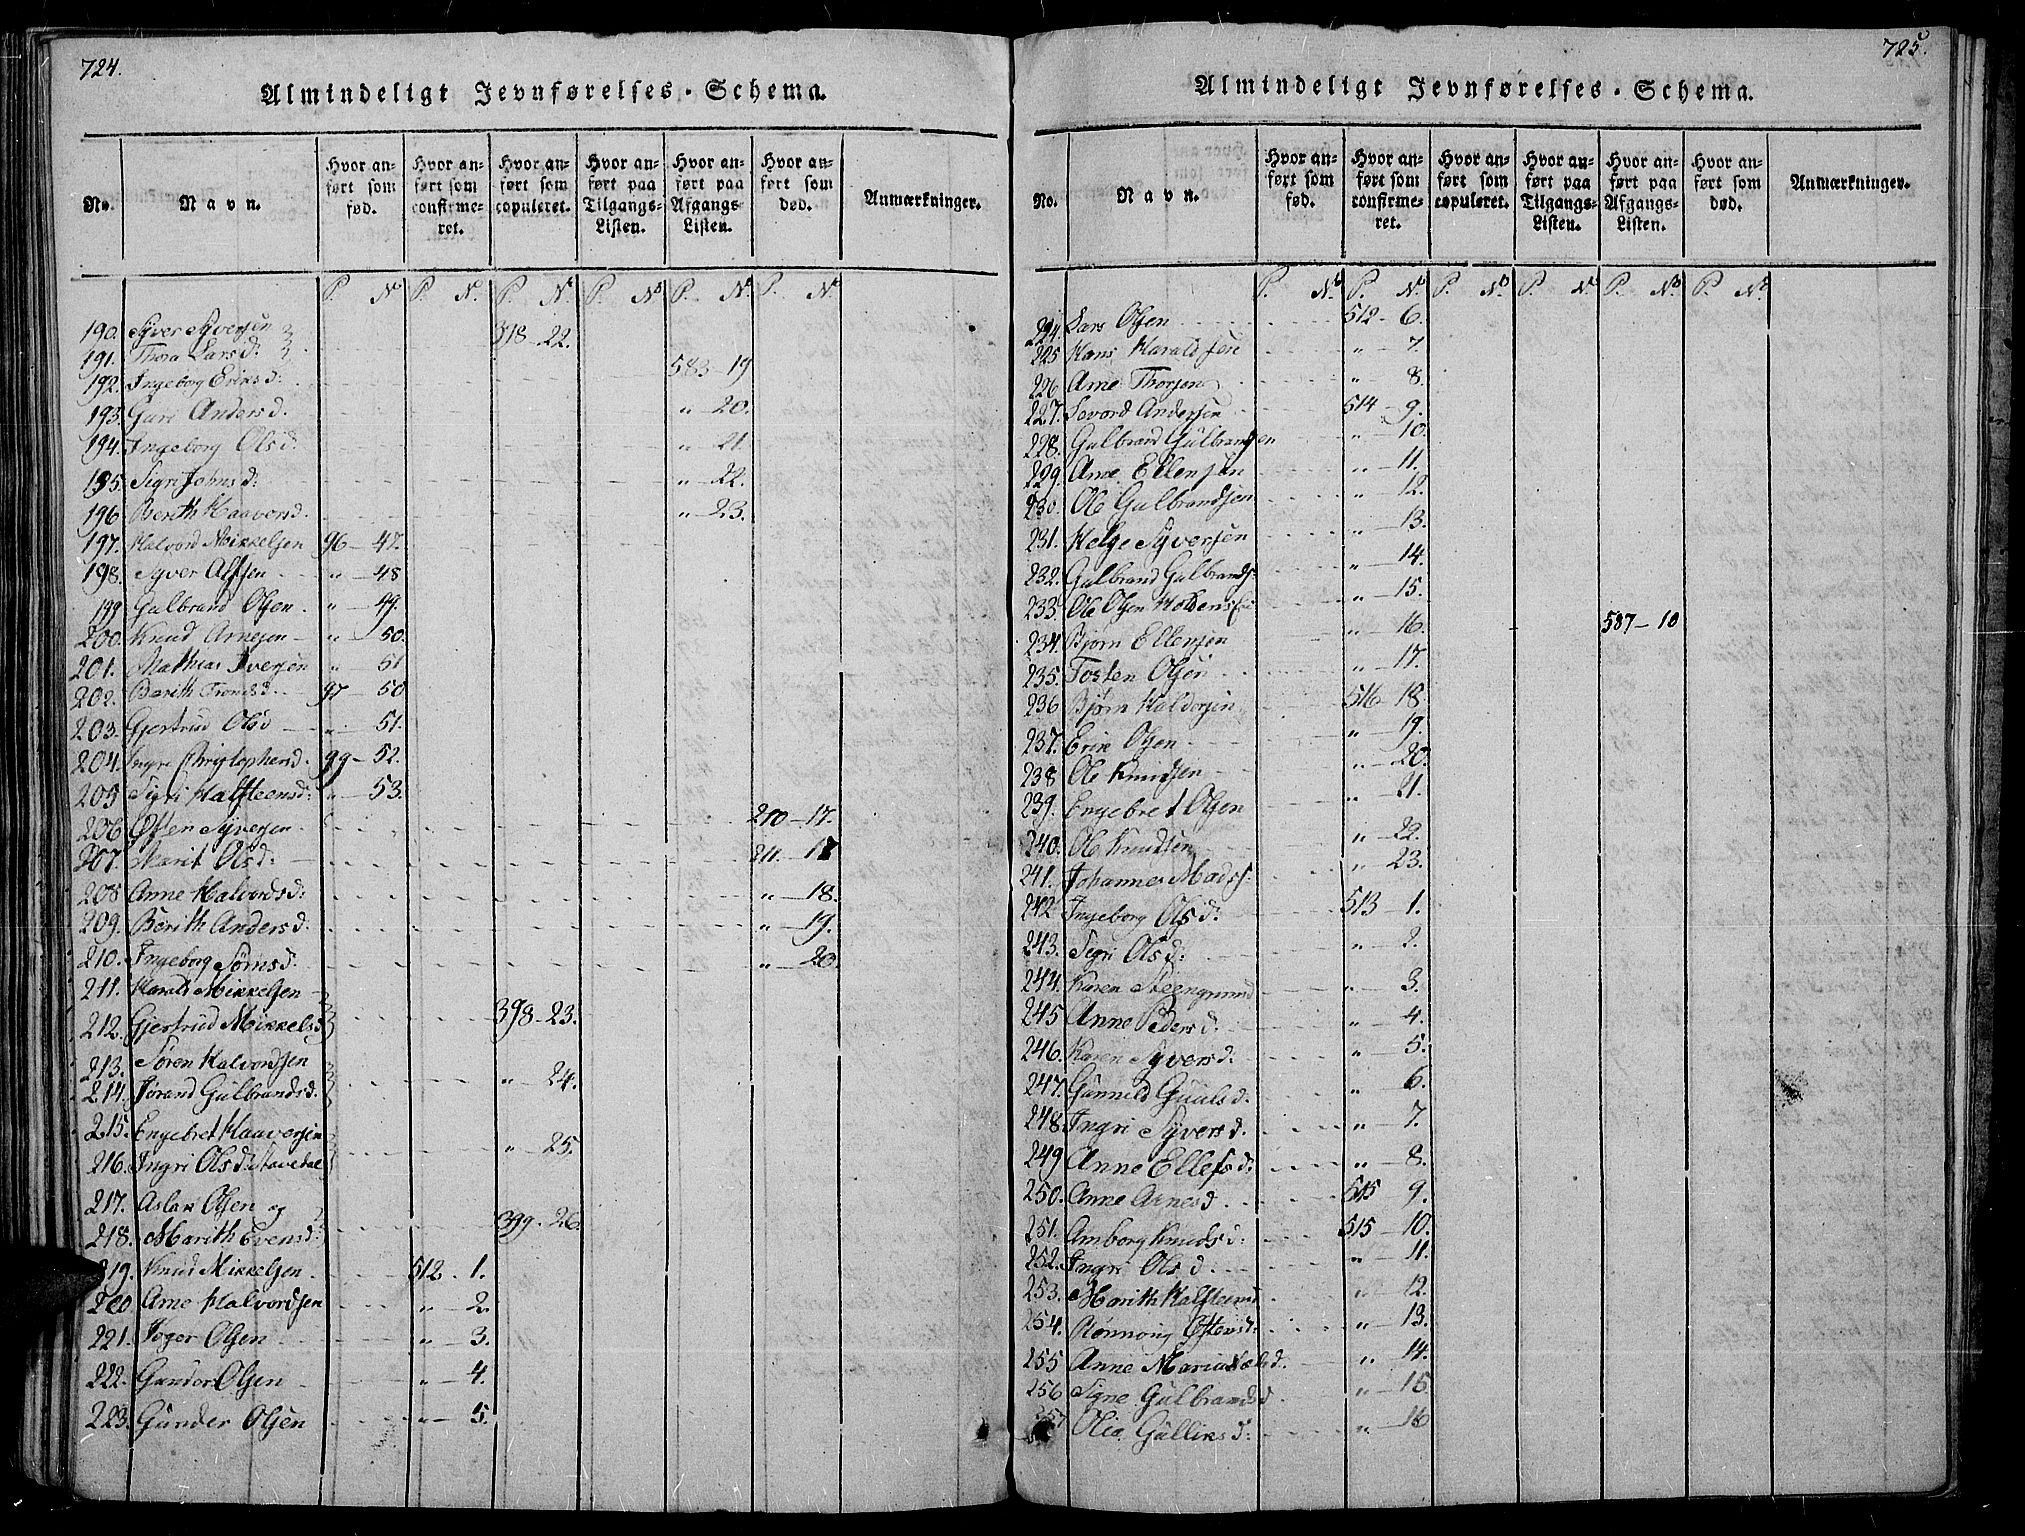 724.
Almindeligt Jevnførelses-Schema.
No. Navn. Hvor anført som fød. Hvor anført som confirmeret. Hvor anført som copuleret. Hvor anført paa Tilgangs-Listen. Hvor anført paa Afgangs Listen. Hvor anført som død. Anmærkninger.
P. No P. N. P. No P. No P. No P. No
190. Syver Syversen 318-22.
191. Thora Lars d:
192. Ingeborg Eriks d: 583-19
193. Guri Anders d. " - 20.
194. Ingeborg Ols d: " - 21.
195. Sigri Johns d: " - 22.
196. Berith Haavers d. " - 23.
197. Halvord Mikkelsen 96-47.
198. Syver Alfsen " - 48
199. Gulbrand Olsen " - 49.
200. Knud Arnesen " - 50.
201. Mathias Iversen " - 51
202. Berith Tronds d. 97-50
203. Gjertrud Ols d " - 51.
204. Ingre Christophers d. 99-52.
205 Sigri Halfsteens d: " - 53.
206 Østen Syversen 210-17.
207. Marit Ols d: 211-17
208 Anne Halvords d: " - 18.
209. Berith Anders d. " - 19.
210. Ingeborg Sørens d. " - 20.
211. Harald Mikkelsen
212. Gjertrud Mikkels d 398-23.
213. Søren Halvordsen
214. Jørand Gulbrands d. " - 24.
215. Engebret Haaversen
216. Ingri Ols d: " - 25.
217. Aslak Olsen og
218. Marith Evens d: 399-26
219. Knud Mikkelsen 512-1.
220 Arne Halvordsen " - 2.
221. Asger Olsen " - 3.
222. Gunder Olsen " - 4.
223. Gunder Olsen " - 5.
725.
Almindeligt Jevnførelses-Schema.
No. Navn. Hvor anført som fød. Hvor anført som confirmeret. Hvor anført som copuleret. Hvor anført paa Tilgangs-Listen. Hvor anført paa Afgangs-Listen. Hvor anført som død. Anmærkninger.
P. No P. No P. No P. No P. No P. No
224. Lars Olsen 512-6.
225 Hans Haraldsen " - 7.
226 Arne Thorsen " - 8.
227. Sevord Andersen 514-9.
228. Gulbrand Gulbrandsen " - 10.
229. Arne Ellensen " - 11.
230. Ole Gulbrandsen " - 12.
231. Helge Syversen " - 13.
232. Gulbrand Gulbrands: " - 14.
233. Ole Olsen " - 15.
234. Bjørn Ellensen " - 16. 587-10
235. Tosten Olsen " - 17.
236 Bjørn Haldorsen 516-18.
237. Erik Olsen " - 19.
238 Ole Knudsen " - 20.
239. Engebret Olsen " - 21.
240. Ole Knudsen " - 22.
241. Johannes Mads: " - 23.
242 Ingeborg Ols d: 513-1.
243. Sigri Ols d: " - 2.
244. Karen Steengrimd " - 3.
245 Anne Peders d. " - 4.
246. Karen Syvers d. " - 5.
247. Gunnild Guuls d. " - 6.
248. Ingri Syvers d. " - 7.
249 Anne Ellefs d: " - 8.
250. Anne Arnes d. 515-9.
251. Amborg Knuds d: 515-10.
252. Ingri Ols d. " - 11.
253. Marith Halfsteensd " - 12.
254. Rønnoug Østens d: " - 13.
255 Anne Maria d. " - 14.
256 Signe Gulbrands d. " - 15.
257 Olia Gulliks d: " - 16